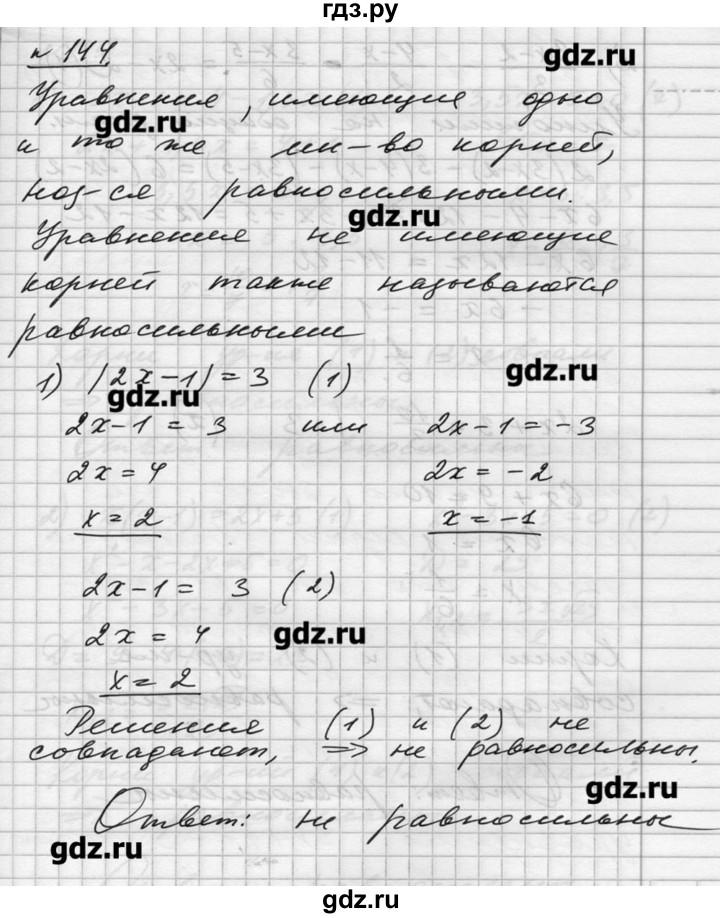 гдз.ру
№ 144.
gdz.ru
Уравнения, имеющие одно
gdz.ru
и то же мн-во корней,
наз-ся равносильными.
gdz.ru
Уравнения не имеющие
корней также называются
равносильными
1) |2x-1| = 3 (1)
gdz.ru
gdz.ru
2x-1 = 3 или 2x-1 = -3
2x = 4 2x = -2
x = 2 x = -1
2x-1 = 3 (2)
2x = 4
gdz.ru
x = 2
Решения (1) и (2) не
совпадают, => не равносильны.
gdz.ru
Ответ: не равносильны
gdz.ru
gdz.ru